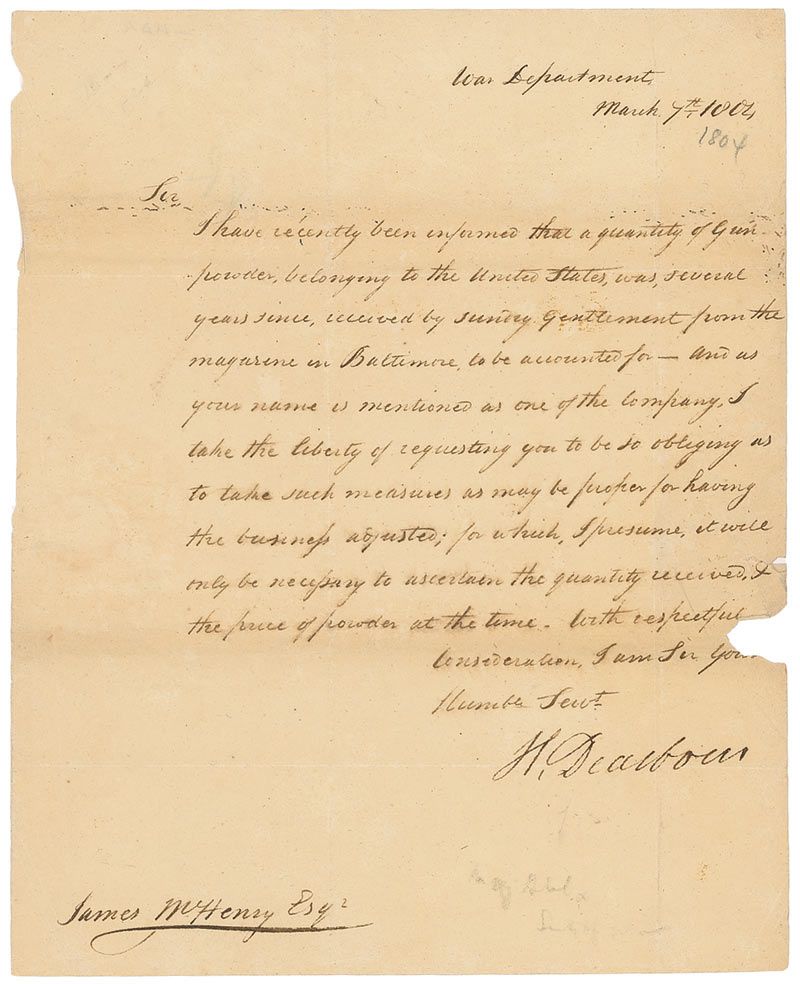 War Department,
March 7th 1804,
1804
Sir
I have recently been informed that a quantity of Gun
powder, belonging to the United States, was, several
years since, received by sundry Gentlement from the
magazine in Baltimore, to be accounted for — and as
your name is mentioned as one of the Company, I
take the liberty of requesting you to be so obliging as
to take such measures as may be proper for having
the business adjusted; for which, I presume, it will
only be necessary to ascertain the quantity received, &
the price of powder at the time. With respectful
Consideration, I am Sir Your
Humble Servt.
H. Dearborn
James McHenry Esqr